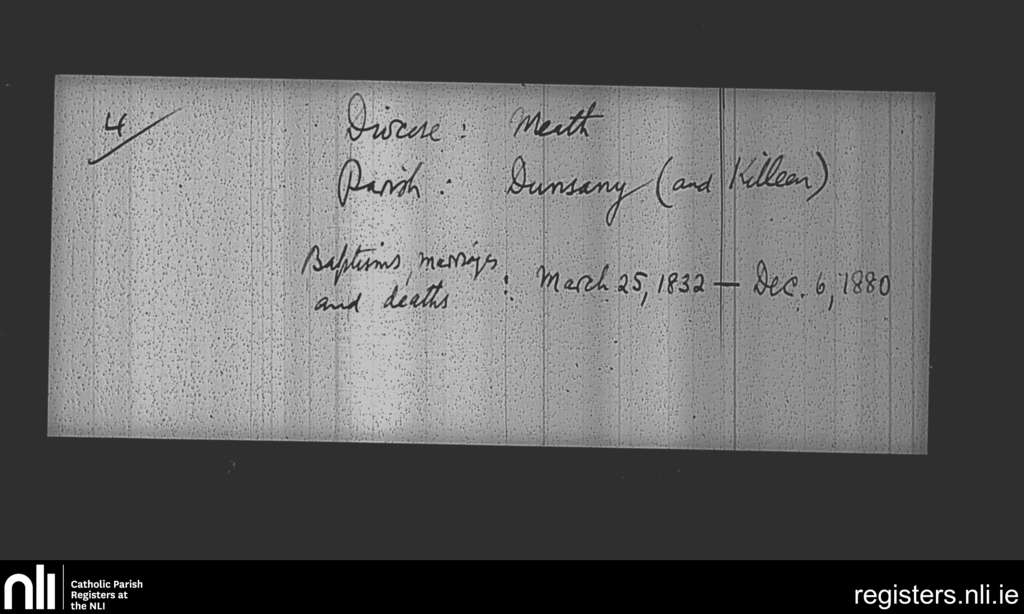 4/
Diocese : Meath
Parish : Dunsany (and Killeen)
Baptisms, marriages
and deaths : March 25, 1832 — Dec. 6, 1880
nli
Catholic Parish
Registers at
the NLI
registers.nli.ie